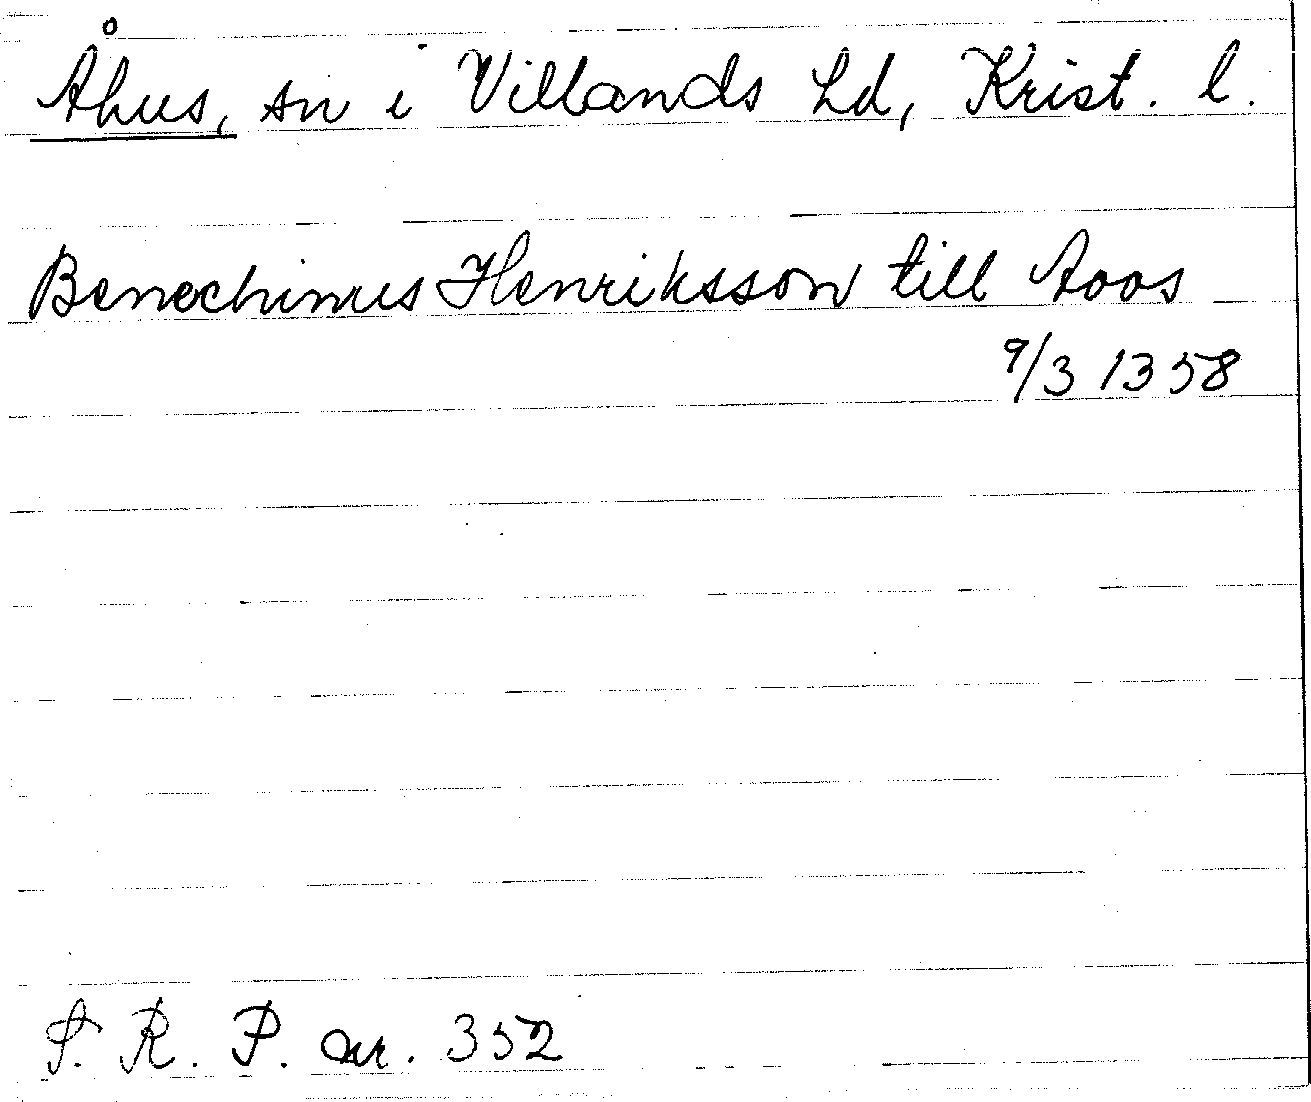 Åhus, sn i Villands hd, Krist. l.
Benechinus Henriksson till Aoos
9/3 1358
S. R. P. nr. 352